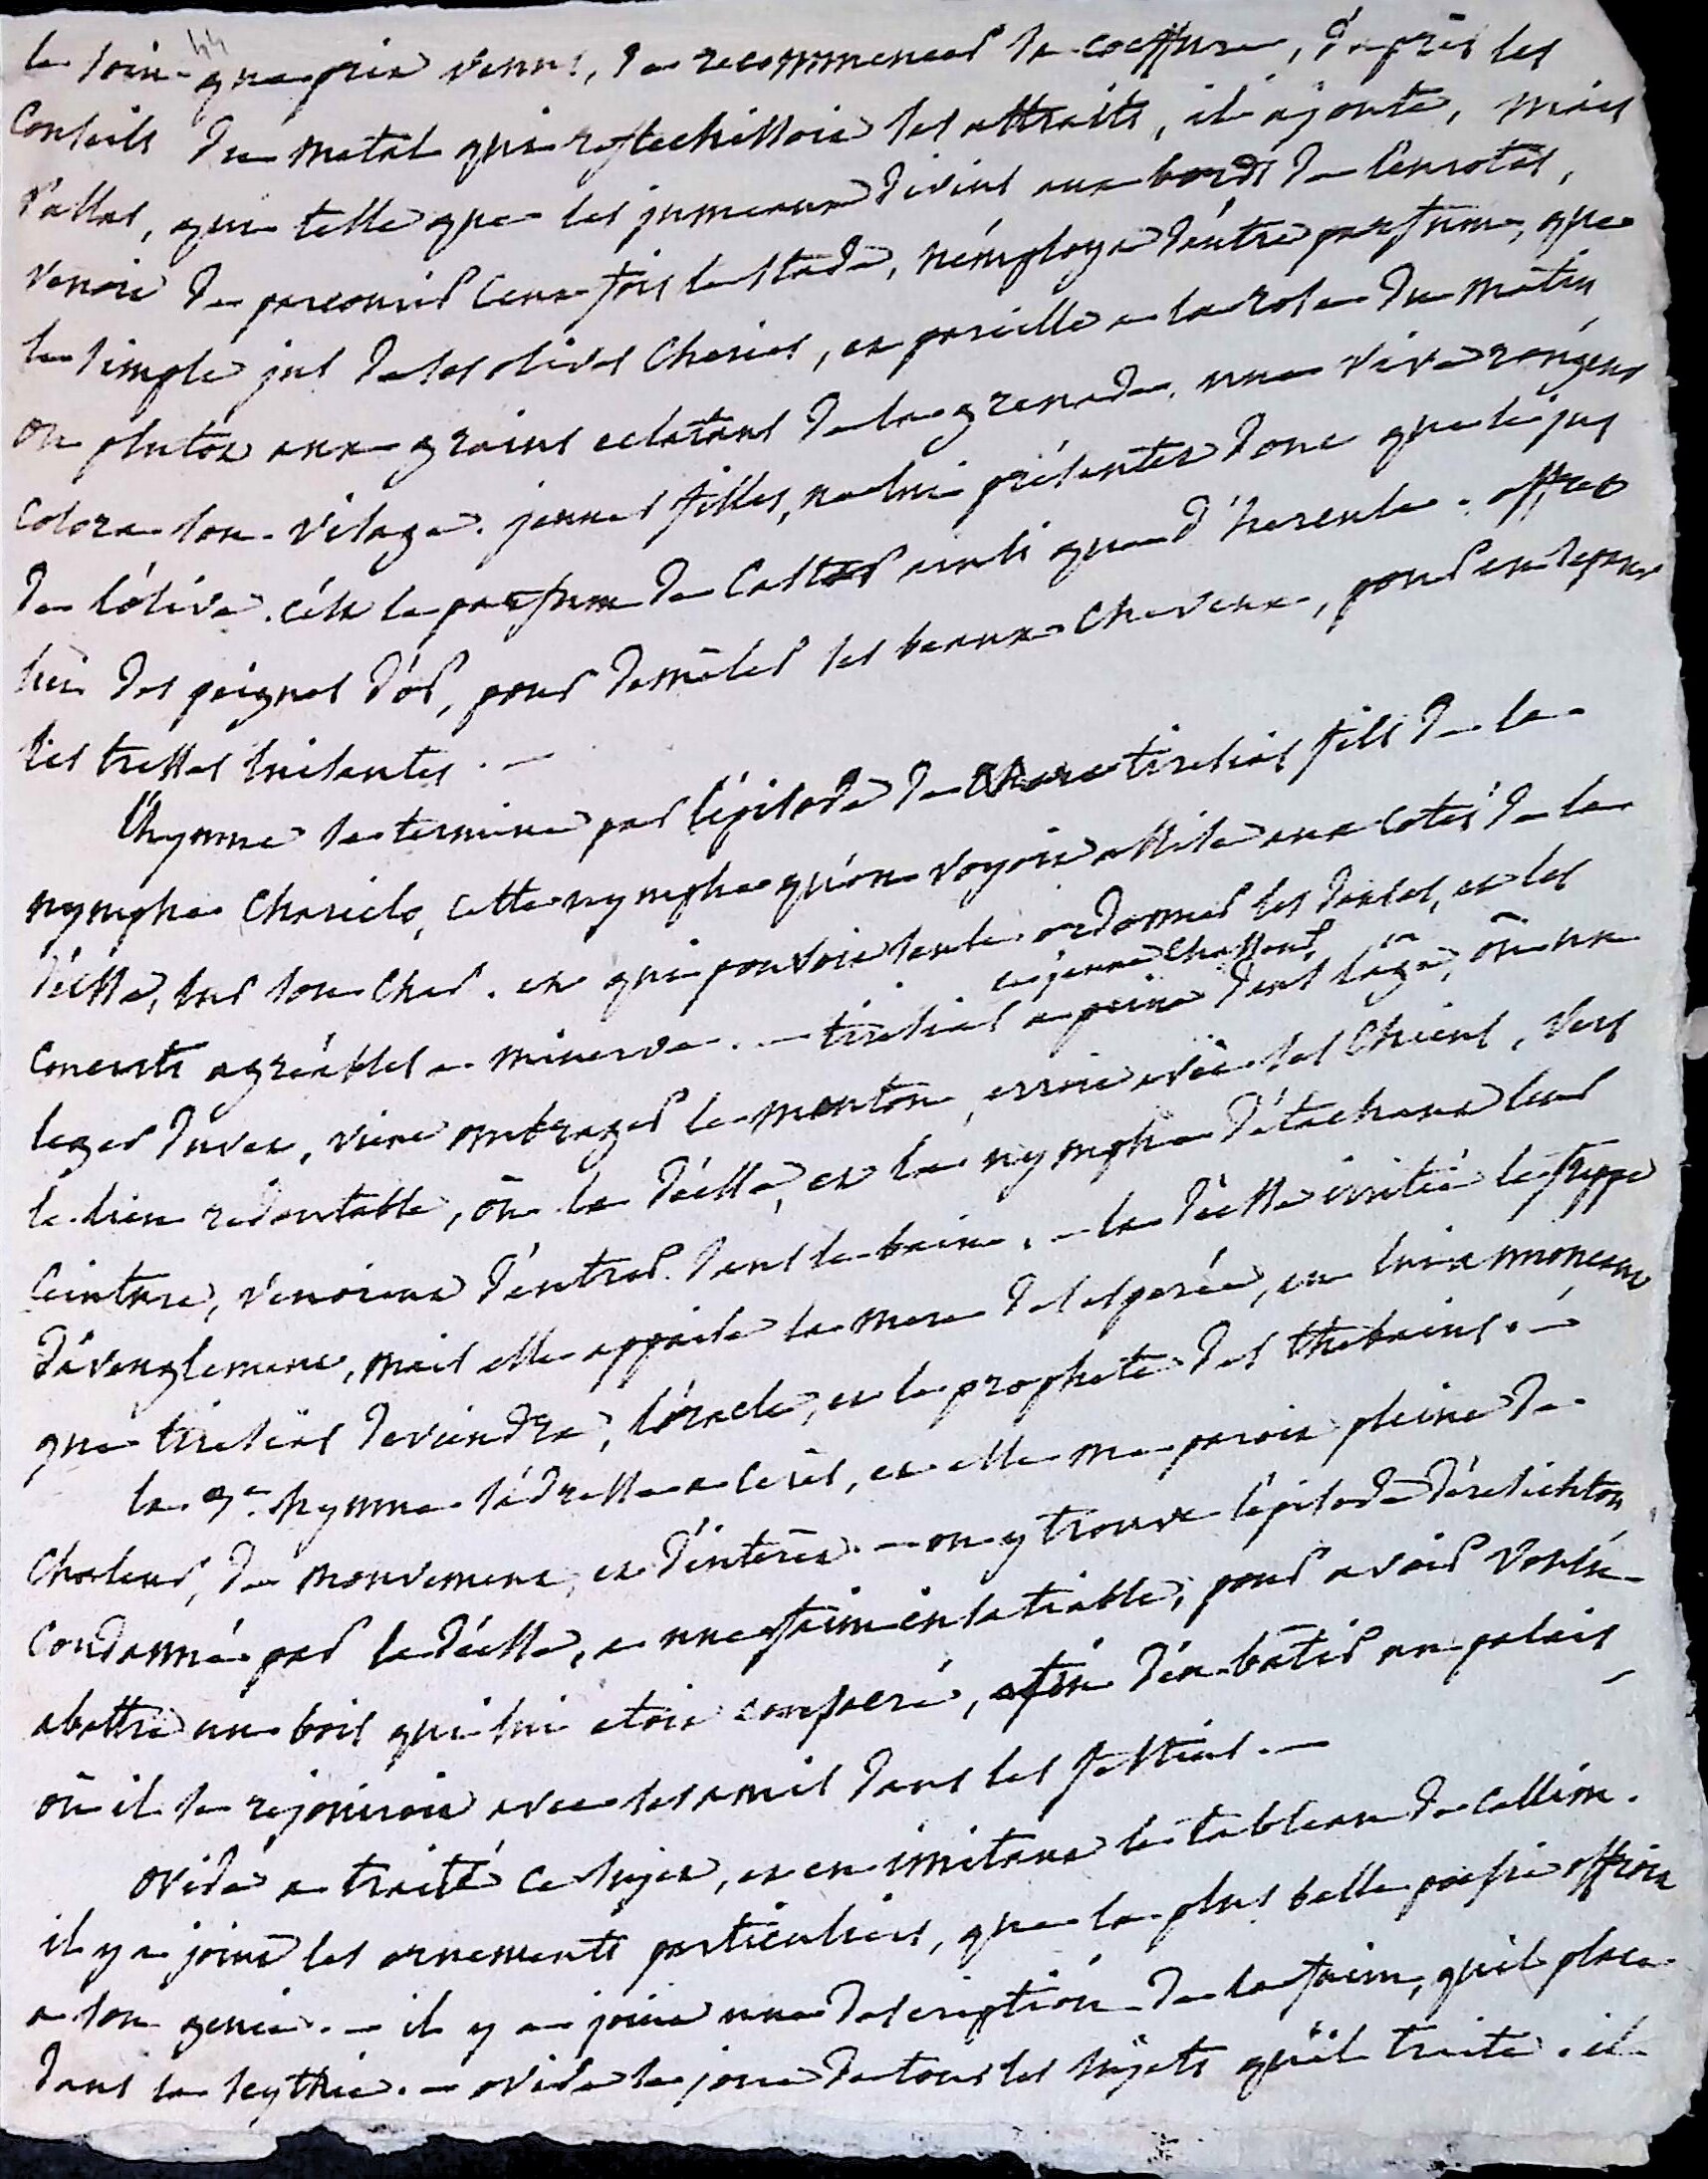 44
le soin que prit venus, de recommencer sa coeffure, d'après les
Conseils du metal qui reflechissoit ses attraits, il ajoute, mais
Pallas, qui telle que les jumeaux divins aux bords de l'eurotas,
venoit de parcourir cent fois le stade, n'employa d'autre parfum, que
le simple jus de ses olives cheries, et pareille a la rose du matin,
ou plutôt aux grains eclatans de la grenade, une vive rougeur
colora son visage. jeunes filles, ne lui présentés donc que le jus
de l'olive. c'est le parfum de Castor ainsi que d'hercule. offrés
lui des peignes d'or, pour demêler ses beaux cheveux, pour en separer
les tresses luisantes. —
L'hymne se termine par l'épisode de tiresias fils de la
nymphe Chariclo, cette nymphe qu'on voyoit assise aux cotés de la
déesse, sur son char. et qui pouvoit seule ordonner les danses, et les
concerts agréables a minerve. — tiresias a peine dans l'age, où un
ce jeune chasseur,
leger duvet, vient ombrager le menton, erroit avec ses chiens, vers
le lieu redoutable, où la déesse, et la nymphe détachant leur
Ceinture, venoient d'entrer dans le bain. — la déesse irritée le frappe
d'aveuglement, mais elle appaise la mere desesperée, en lui annonçant
que tiresias deviendra, l'oracle, et le prophete des thebains. —
la 7e. hymne s'adresse a cerès, et elle me paroit pleine de
chaleur, de mouvement, et d'interêt. — on y trouve l'épisode d'eresichton
Condamné par la déesse, a une faim insatiable, pour avoir voulu
abattre un bois qui lui etoit consacré, afin d'en bâtir un palais
où il se rejouiroit avec ses amis dans les festins. —
ovide a traité ce sujet, et en imitant le tableau de callim.
il y a joint les ornements particuliers, que la plus belle poesie offroit
a son genie. — il y a joint une description de la faim, qu'il place
dans la scythie. — ovide se joue de tous les sujets qu'il traite. il